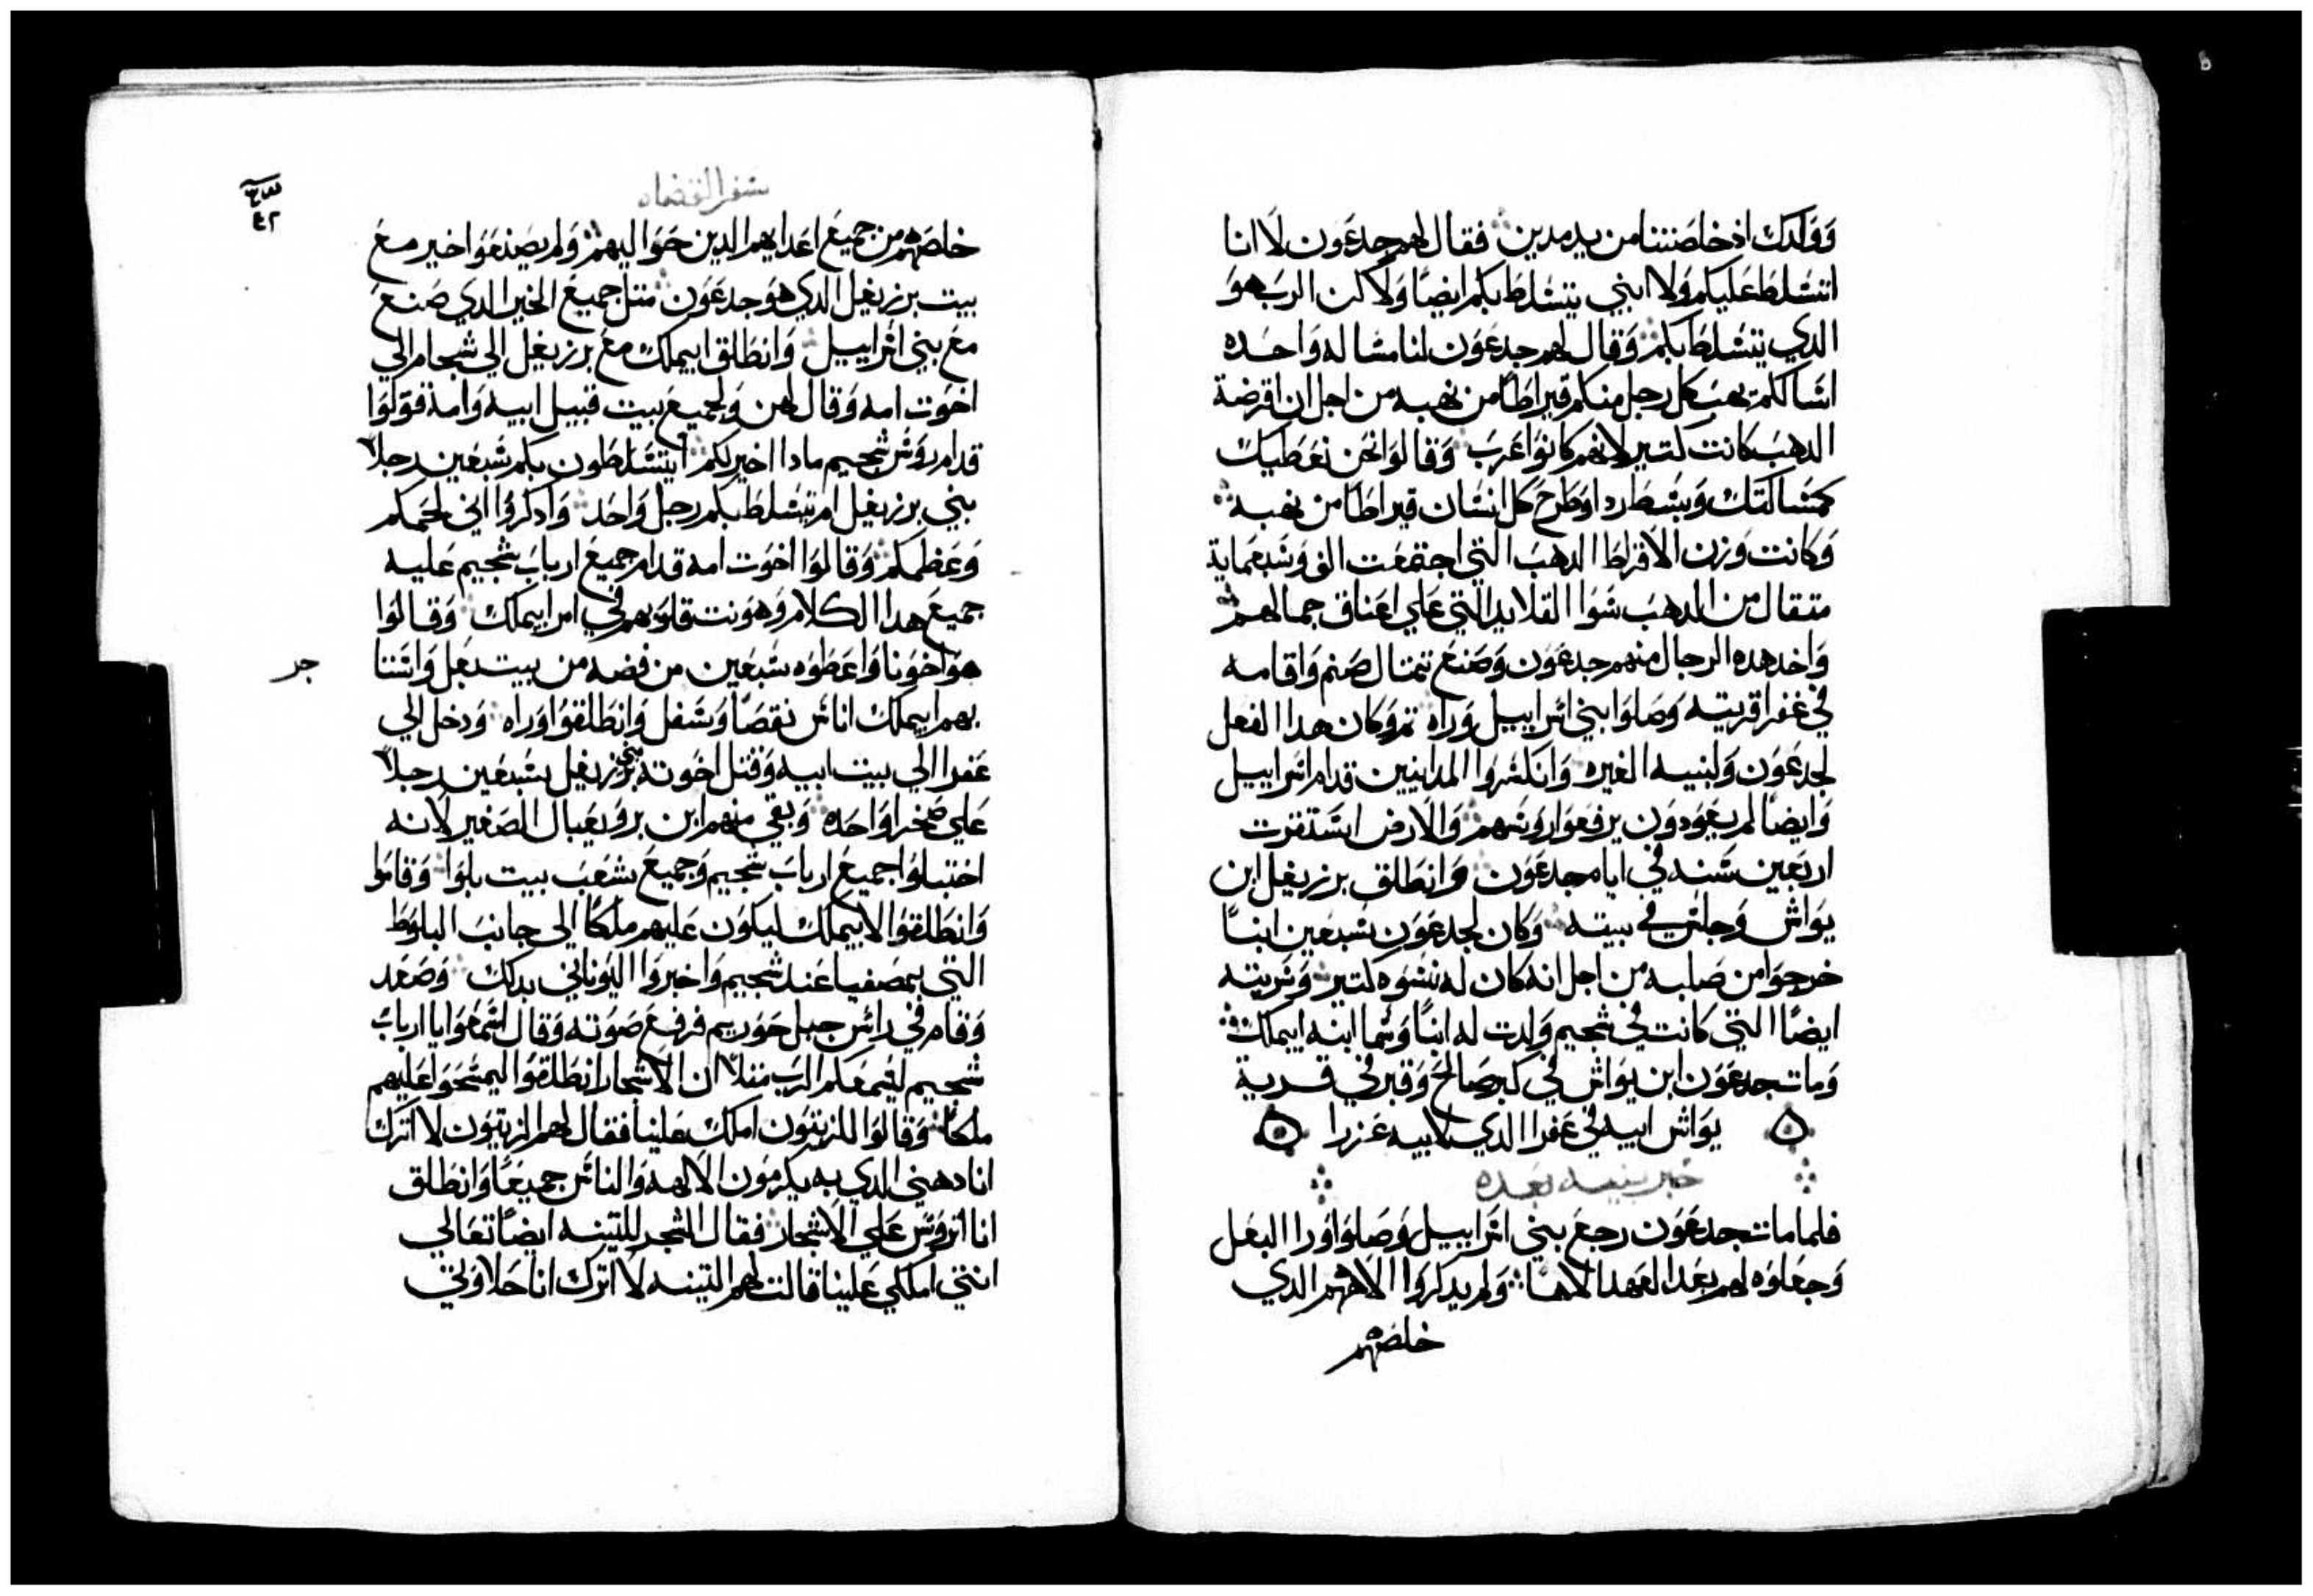 وولدك اذ خلصتنا من يد مدين فقال لهم جدعون لا انا
اتسلط عليكم ولا ابني يتسلط بكم ايضًا ولاكن الرب هو
الدي يتسلط بكم وقال لهم جدعون لنا مساله واحده
اسالكم يهب كل رجل منكم قيراطًا من نهبه من اجل ان اقرضة
الدهب كانت كتير لانهم كانوا عرب وقالوا نحن نعطيك
كمسالتك وبسط ردا وطرح كل انسان قيراطا من نهبه
وكانت وزن الاقراط الدهب التي اجتمعت الف وسبعماية
متقال من الدهب سوا القلايد التي علي اعناق جمالهم
واخد هده الرجال منهم جدعون وصنع تمتال صنم واقامه
في عفرا قريته وصلوا بني اسراييل وراه وكان هدا الفعل
لجدعون ولبنيه الغيره وانكسروا المدانيين قدام اسراييل
وايضًا لم يعودون يرفعوا روسهم والارض استقرت
اربعين سنه في ايام جدعون وانطلق برزبعل ابن
يواش وجلس في بيته وكان لجدعون سبعين ابنًا
خرجوا من صلبه من اجل انه كان له نسوه كتير وسريته
ايضًا التي كانت في شجيم ولدت له ابنًا وسما ابنه ايمالك
ومات جدعون ابن يواش في كبر صالح وقبر في قرية
يواش ابيه في عفرا الدي لابيه عزرا
خبر بنيه بعده
فلما مات جدعون رجع بني اسراييل وصلوا ورا البعل
وجعلوه لهم بعد العهد الاهًا ولم يدكروا الاههم الدي
خلصهم
سفر القضاه
٤٢
خلصهم من جميع اعدايهم الدين حواليهم ولم يصنعوا خير مع
بيت برزبعل الدي هو جدعون متل جميع الخير الدي صنع
مع بني اسراييل وانطلق ايمالك مع برزبعل الي شجام الي
اخوت امه وقال لهن ولجميع بيت قبيل ابيه وامه قولوا
قدام روس شجيم مادا اخير لكم ايتسلطون بكم سبعين رجلًا
بني برزبعل ام يتسلط بكم رجل واحد وادكروا اني لحمكم
وعظمكم وقالوا اخوت امه قدام جميع ارباب شجيم عليه
جميع هدا الكلام وهونت قلوبهم في امر ايمالك وقالوا
هو اخونا واعطوه سبعين من فضه من بيت بعل واستا
بهم ايمالك اناس نقصًا وسفل وانطلقوا وراه ودخل الي
عفرا الي بيت ابيه وقتل اخوته بني برزبعل سبعين رجلًا
علي صخرا واحده وبقي منهم ابن بروبعبال الصغير لانه
اختبا واجميع ارباب شجيم وجميع شعب بيت بلوا وقاموا
وانطلقوا لايمالك ليكون عليهم ملكًا الي جانب البلوط
التي بمصفيا عند شجيم واخبروا اليوناني بدلك وصعد
وقام في راس جبل حوريم فرفع صوته وقال اسمعوا يا ارباب
شجيم ليسمعكم الرب متلًا ان الاشجار انطلقوا ليمسحوا عليهم
ملكًا وقالوا للزيتون املك علينا فقال لهم الزيتون لا اترك
انا دهني الدي به يكرمون الالهه والناس جميعًا وانطلق
انا اتروس علي الاشجار فقال الشجر للتينه ايضًا تعالي
انتي املكي علينا قالت لهم التينه لا اترك انا حلاوتي